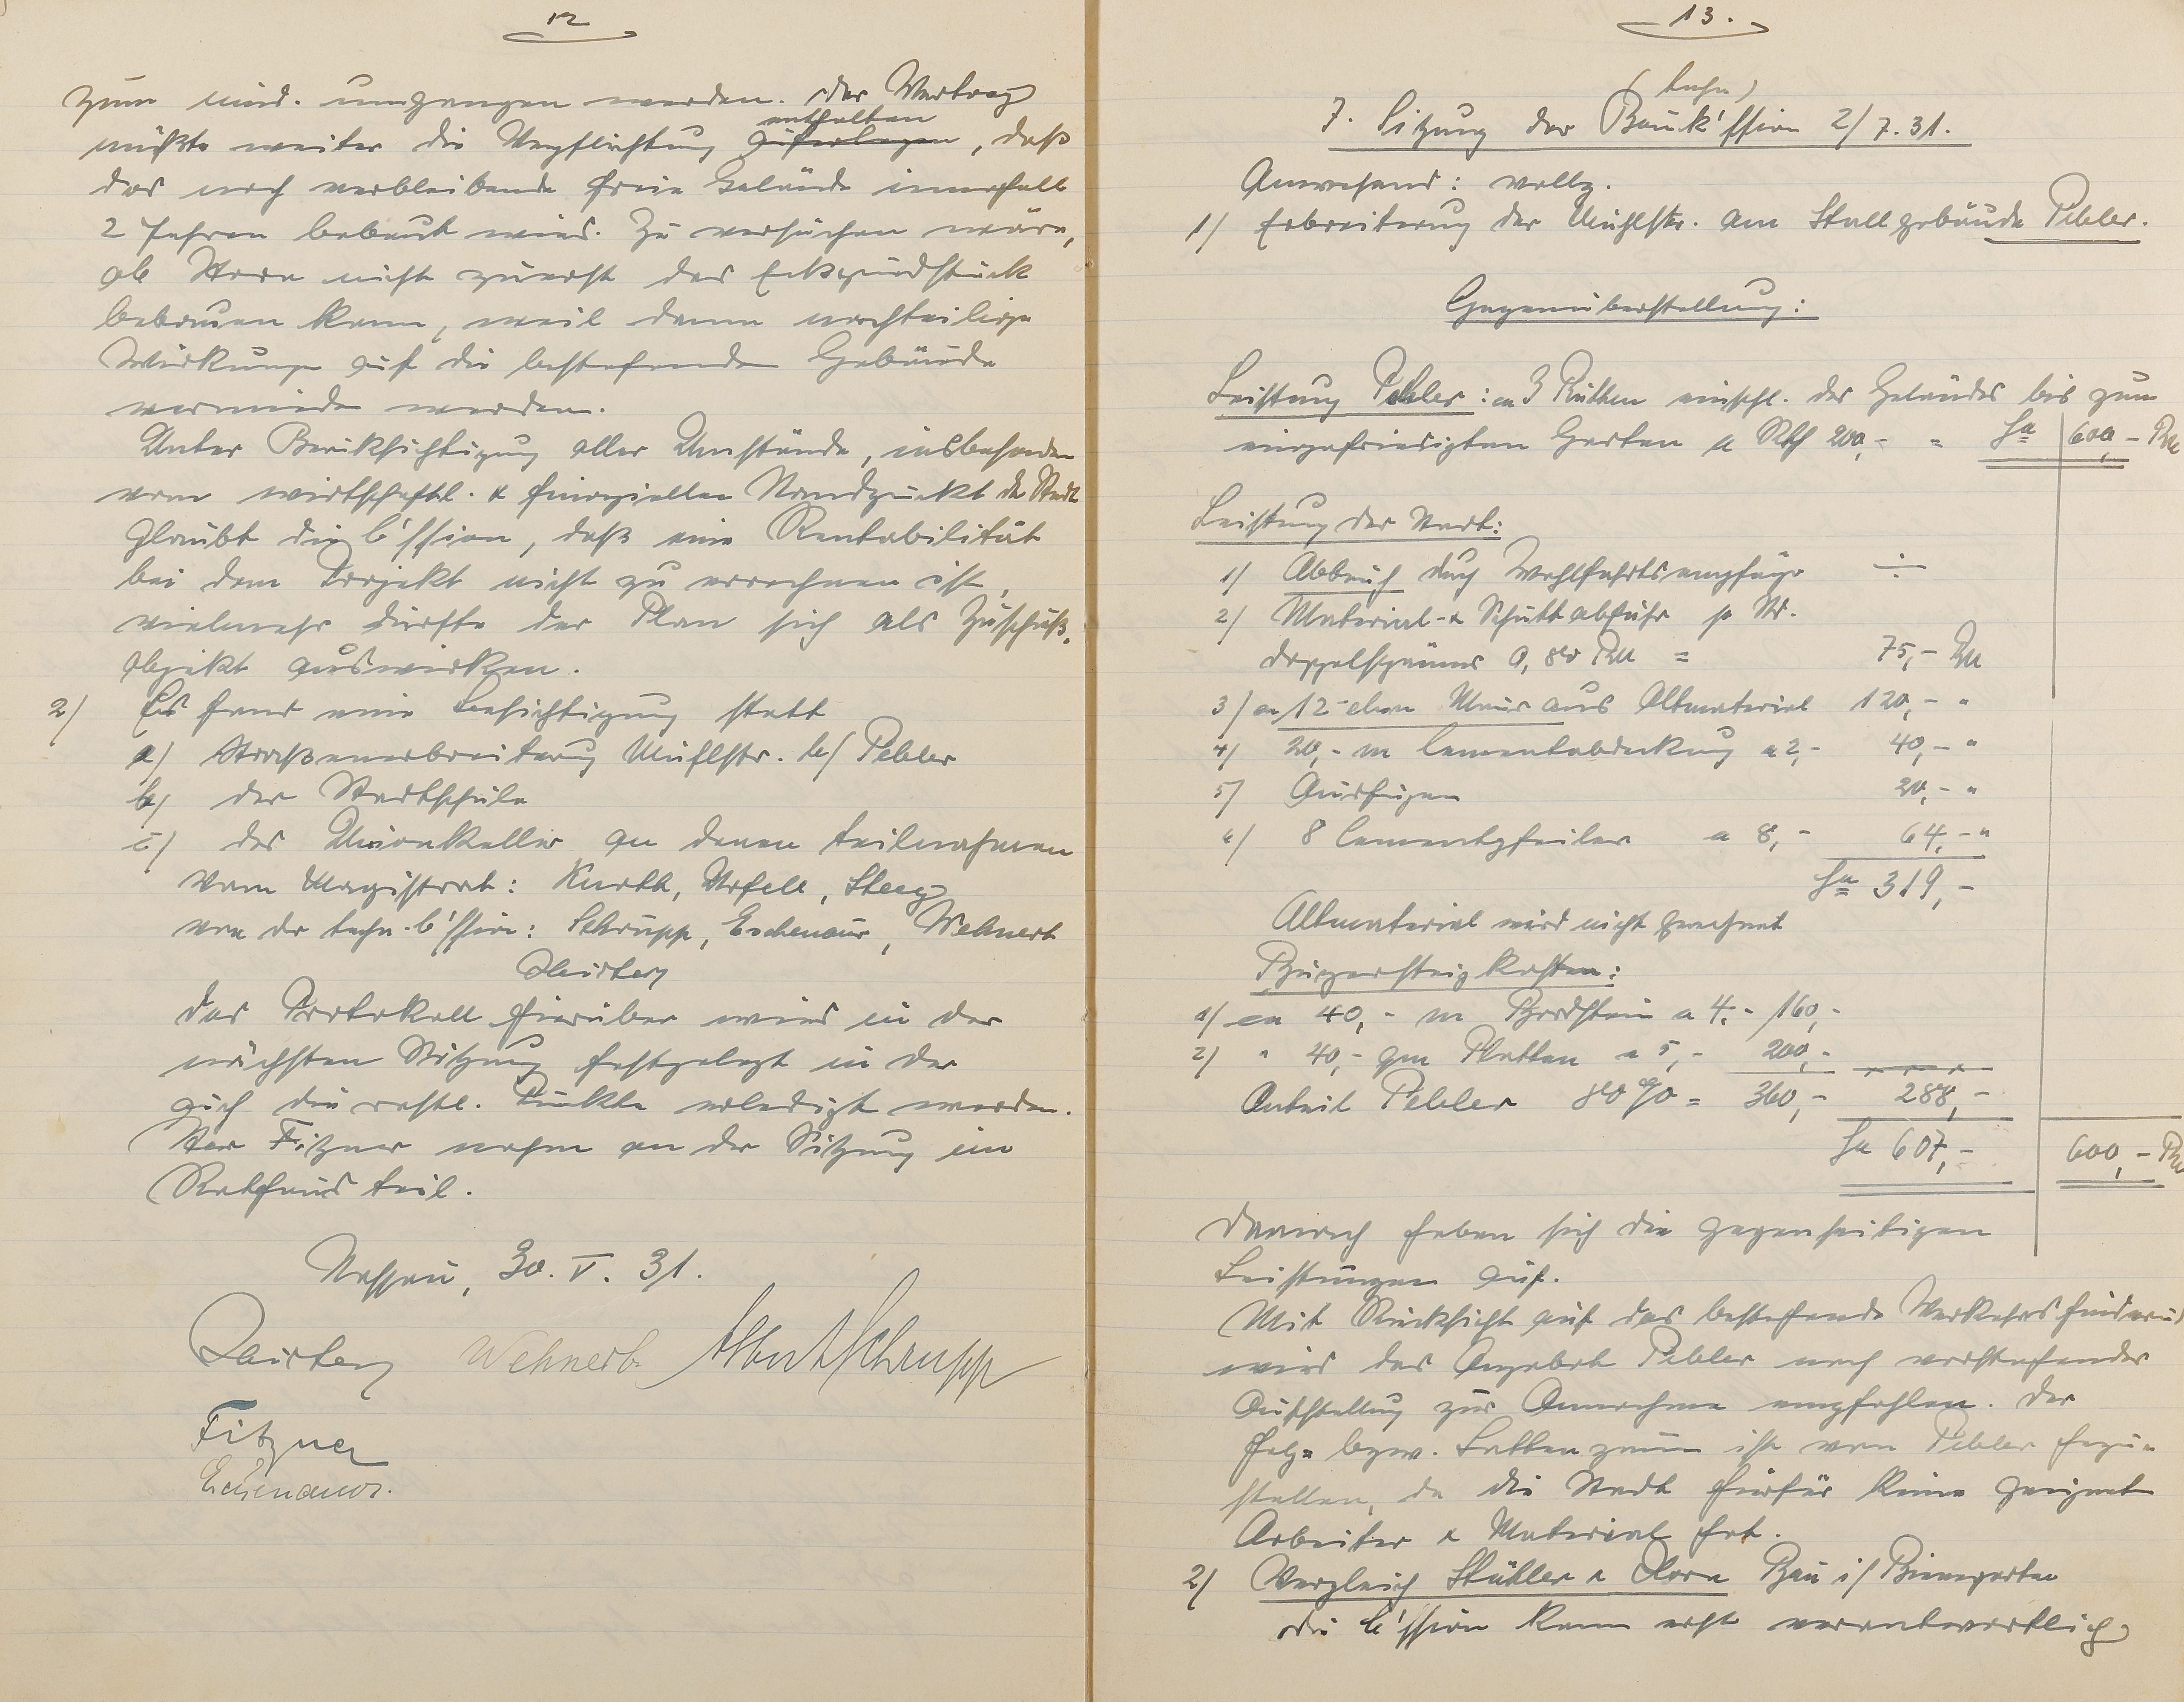 12
zum mind. umgangen werden. Der Vertrag
müßte weiter die Verpflichtung enthalten, daß
das noch verbleibende freie Gelände innerhalb
2 Jahren bebaut wird. Zu versuchen wäre,
ob Horn nicht zuerst das Eckgrundstück
bebauen kann, weil dann nachteilige
Wirkunge auf die bestehenden Gebäude
vermieden werden.
Unter Berücksichtigung aller Umstände, insbesondere
vom wirtschaftl. & finanziellen Standpunkt der Stadt
glaubt die C'ssion, daß eine Rentabilität
bei dem Projekt nicht zu errechnen ist,
vielmehr dürfte der Plan sich als Zuschuß-
objekt auswirken.
2) Es fand eine Besichtigung statt
a) Straßenverbreiterung Mühlstr. b/ Pebler
b) der Stadtschule
c) des Unionkeller an denen teilnahmen
vom Magistrat: Kurth, Unfell, Steeg
von der techn. C'ssion: Schrupp, Eschenauer, Wehnert
Das Protokoll hierüber wird in der
nächsten Sitzung festgelegt in der
auch die restl. Punkte erledigt werden.
Herr Fitzner nahm an der Sitzung im
Rathaus teil.
Nassau, 30. V. 31.
Wehnert Albert Schrupp
Fitzner
Eschenauer.
13.
(techn)
7. Sitzung der Bauk'ssion 2/7.31.
Anwesend: vollz.
1) Erbreiterung der Mühlstr. am Stallgebäude Pebler.
Gegenüberstellung:
Leistung Pebler: ca 3 Ruthen einschl. des Geländes bis zum
eingefriedigten Garten a Rth 200,- = Sa 600,- RM
Leistung der Stadt:
1) Abbruch durch Wohlfahrtsempfänger ÷
2) Material- & Schuttabfuhr p Str.
Doppelspänner 0,80 RM = 75,- RM
3) ca 12 cbm Maur aus Altmaterial 120,- "
4) 20,- m Cementabdeckung a 2,- 40,- "
5) Ausfugen 20,- "
6) 8 Cementpfeiler a 8,- 64,- "
Sa 319,-
Altmaterial wird nicht gerechnet
Bürgersteigkosten:
1) ca 40,- m Bordstein a 4,- 160,-
2) " 40,- qm Platten a 5,- 200,-
Anteil Pebler 80% = 360,- 288,-
Sa 607,- 600,- RM
Danach heben sich die gegenseitigen
Leistungen auf.
Mit Rücksicht auf das bestehende Verkehrshindernis
wird das Angebot Pebler nach vorstehender
Aufstellung zur Annahme empfohlen. Der
Holz= bezw. Lattenzaun ist von Pebler herzu=
stellen, da die Stadt hierfür keine geeignet
Arbeiter & Material hat.
2) Vergleich Stübler & Horn Bau i/ Bienengarten
Die C'ssion kann erst verantwortlich